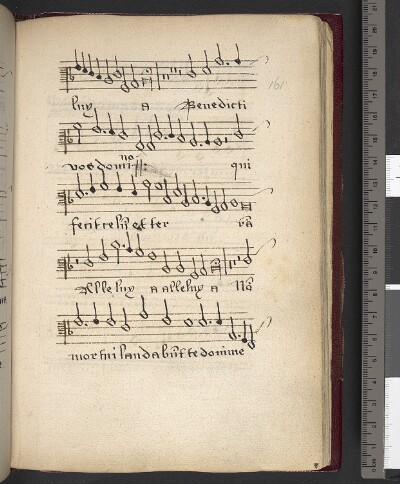 161
luy a Benedicti
vos domino qui
fecit celum et ter ra
Alleluy a alleluy a No
mortui laudabunt te domine